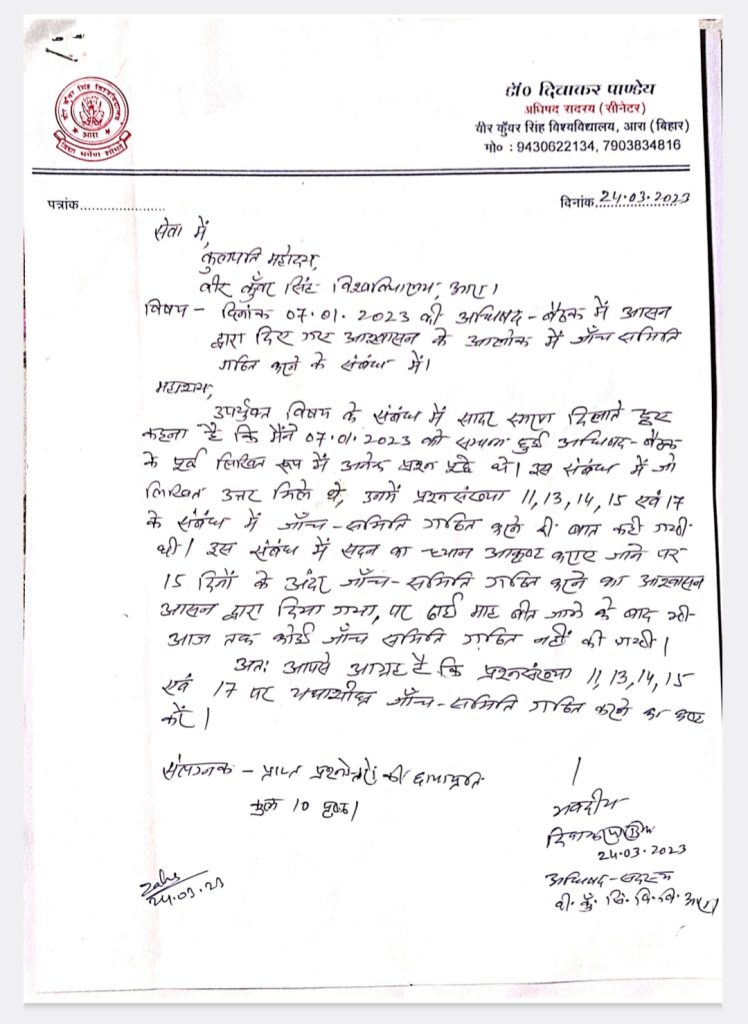 वीर कुँवर सिंह विश्वविद्यालय
आरा
विद्या धर्मेण शोभते
डॉ० दिवाकर पाण्डेय
अधिषद सदस्य (सीनेटर)
वीर कुँवर सिंह विश्वविद्यालय, आरा (बिहार)
मो० : 9430622134, 7903834816
पत्रांक....................
दिनांक 24.03.2023
सेवा में,
कुलपति महोदय,
वीर कुँवर सिंह विश्वविद्यालय, आरा।
विषय - दिनांक 07.01.2023 की अधिषद-बैठक में आसन
द्वारा दिए गए आश्वासन के आलोक में जाँच समिति
गठित करने के संबंध में।
महाशय,
उपर्युक्त विषय के संबंध में सादर स्मरण दिलाते हुए
कहना है कि मैंने 07.01.2023 को सम्पन्न हुई अधिषद-बैठक
के पूर्व लिखित रूप में अनेक प्रश्न पूछे थे। इस संबंध में जो
लिखित उत्तर मिले थे, उनमें प्रश्नसंख्या 11,13,14,15 एवं 17
के संबंध में जाँच-समिति गठित करने की बात कही गयी
थी। इस संबंध में सदन का ध्यान आकृष्ट कराए जाने पर
15 दिनों के अंदर जाँच-समिति गठित करने का आश्वासन
आसन द्वारा दिया गया, पर ढाई माह बीत जाने के बाद भी
आज तक कोई जाँच समिति गठित नहीं की गयी।
अतः आपसे आग्रह है कि प्रश्नसंख्या 11,13,14,15
एवं 17 पर यथाशीघ्र जाँच-समिति गठित करने का कष्ट
करें।
संलग्नक - प्राप्त प्रश्नोत्तरों की छायाप्रति
कुल 10 पृष्ठ।
भवदीय
24.03.2023
अधिषद-सदस्य
वी. कुँ. सिं. वि. वि. आरा
24.03.23